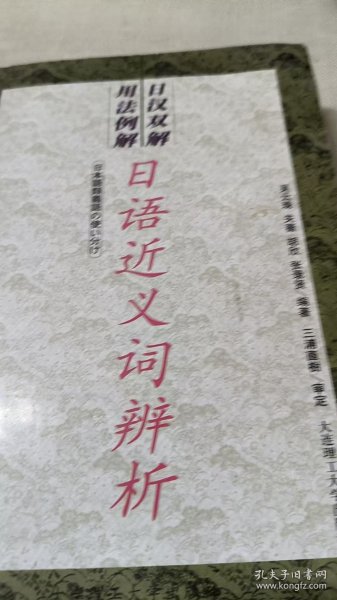 日汉双解
用法例解
日语近义词辨析
(日本語類義語の使い分け)
夫 编著
三浦直樹/审定
大连理工大学
孔夫子旧书网
www.kongfz.com